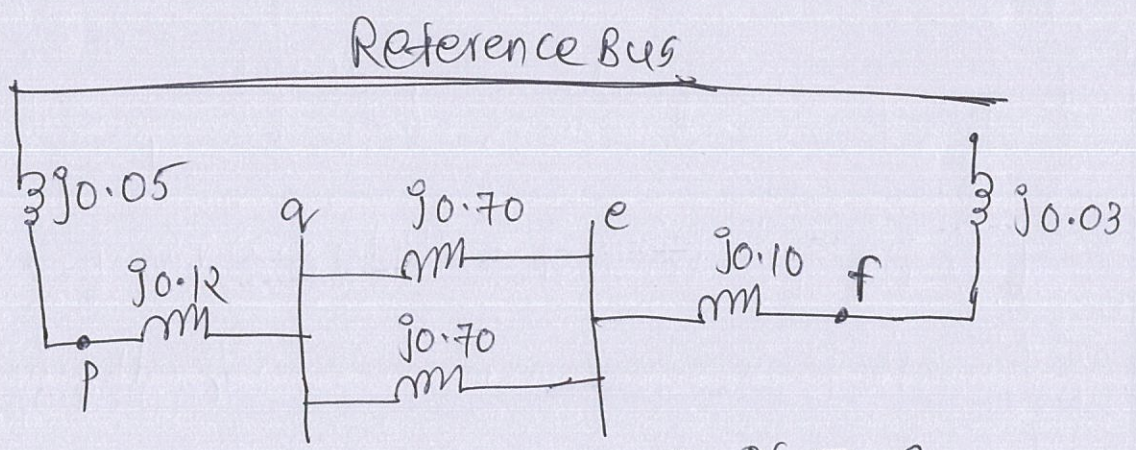 Reference Bus
j0.05
q
j0.70
e
j0.03
j0.12
j0.10
f
j0.70
p